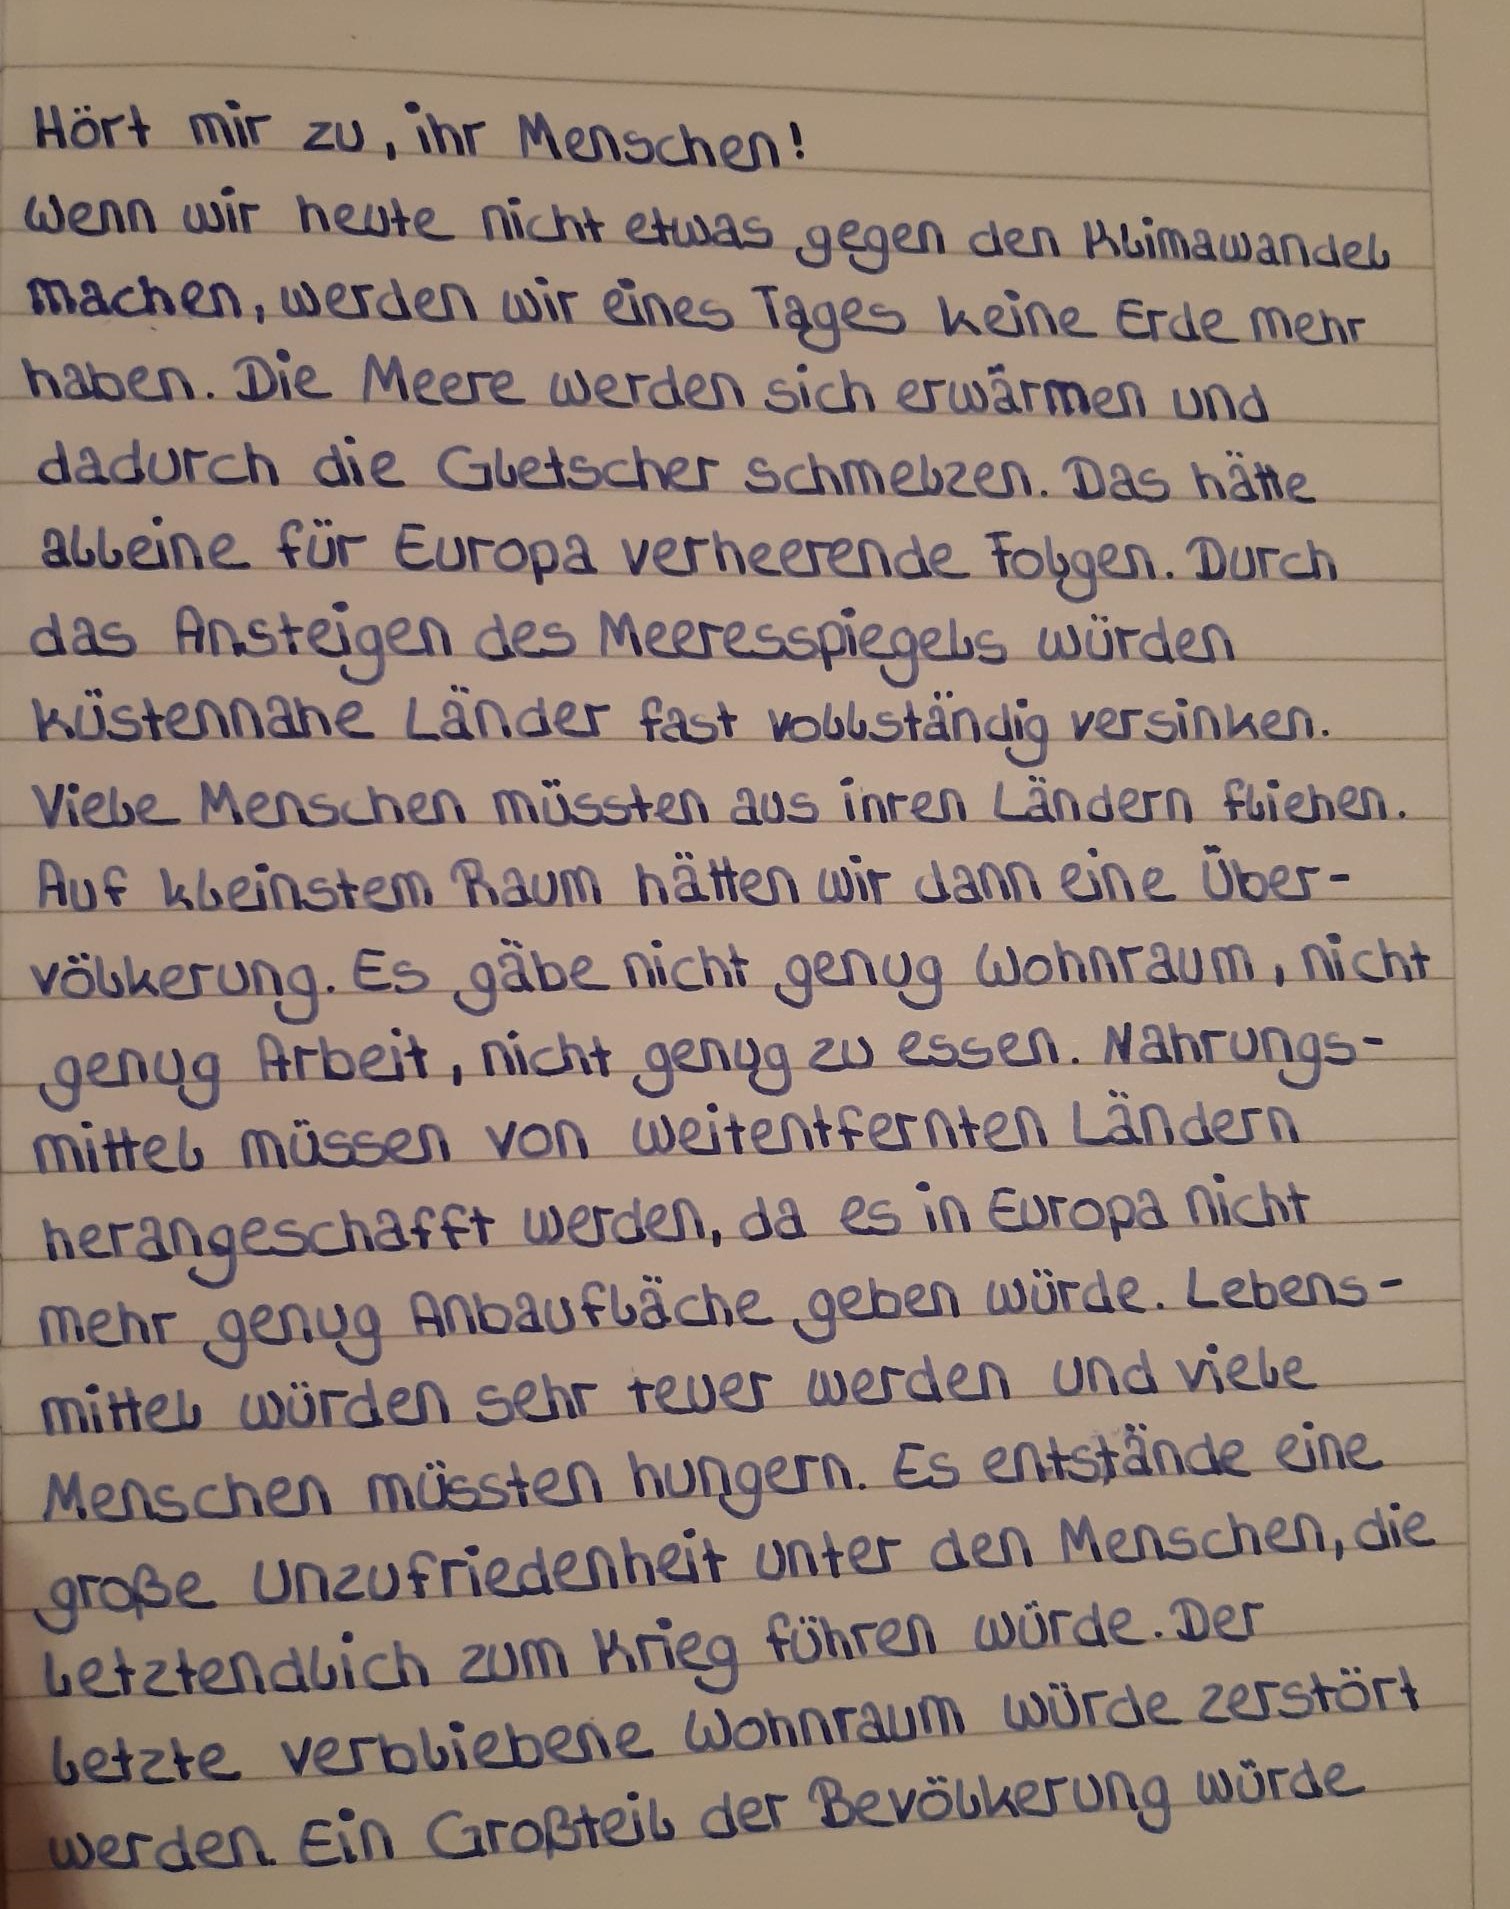 Hört mir zu, ihr Menschen!
Wenn wir heute nicht etwas gegen den Klimawandel
machen, werden wir eines Tages keine Erde mehr
haben. Die Meere werden sich erwärmen und
dadurch die Gletscher schmelzen. Das hätte
alleine für Europa verheerende Folgen. Durch
das Ansteigen des Meeresspiegels würden
küstennahe Länder fast vollständig versinken.
Viele Menschen müssten aus ihren Ländern fliehen.
Auf kleinstem Raum hätten wir dann eine Über-
völkerung. Es gäbe nicht genug Wohnraum, nicht
genug Arbeit, nicht genug zu essen. Nahrungs-
mittel müssen von weitentfernten Ländern
herangeschafft werden, da es in Europa nicht
mehr genug Anbaufläche geben würde. Lebens-
mittel würden sehr teuer werden und viele
Menschen müssten hungern. Es entstände eine
große Unzufriedenheit unter den Menschen, die
letztendlich zum Krieg führen würde. Der
letzte verbliebene Wohnraum würde zerstört
werden. Ein Großteil der Bevölkerung würde